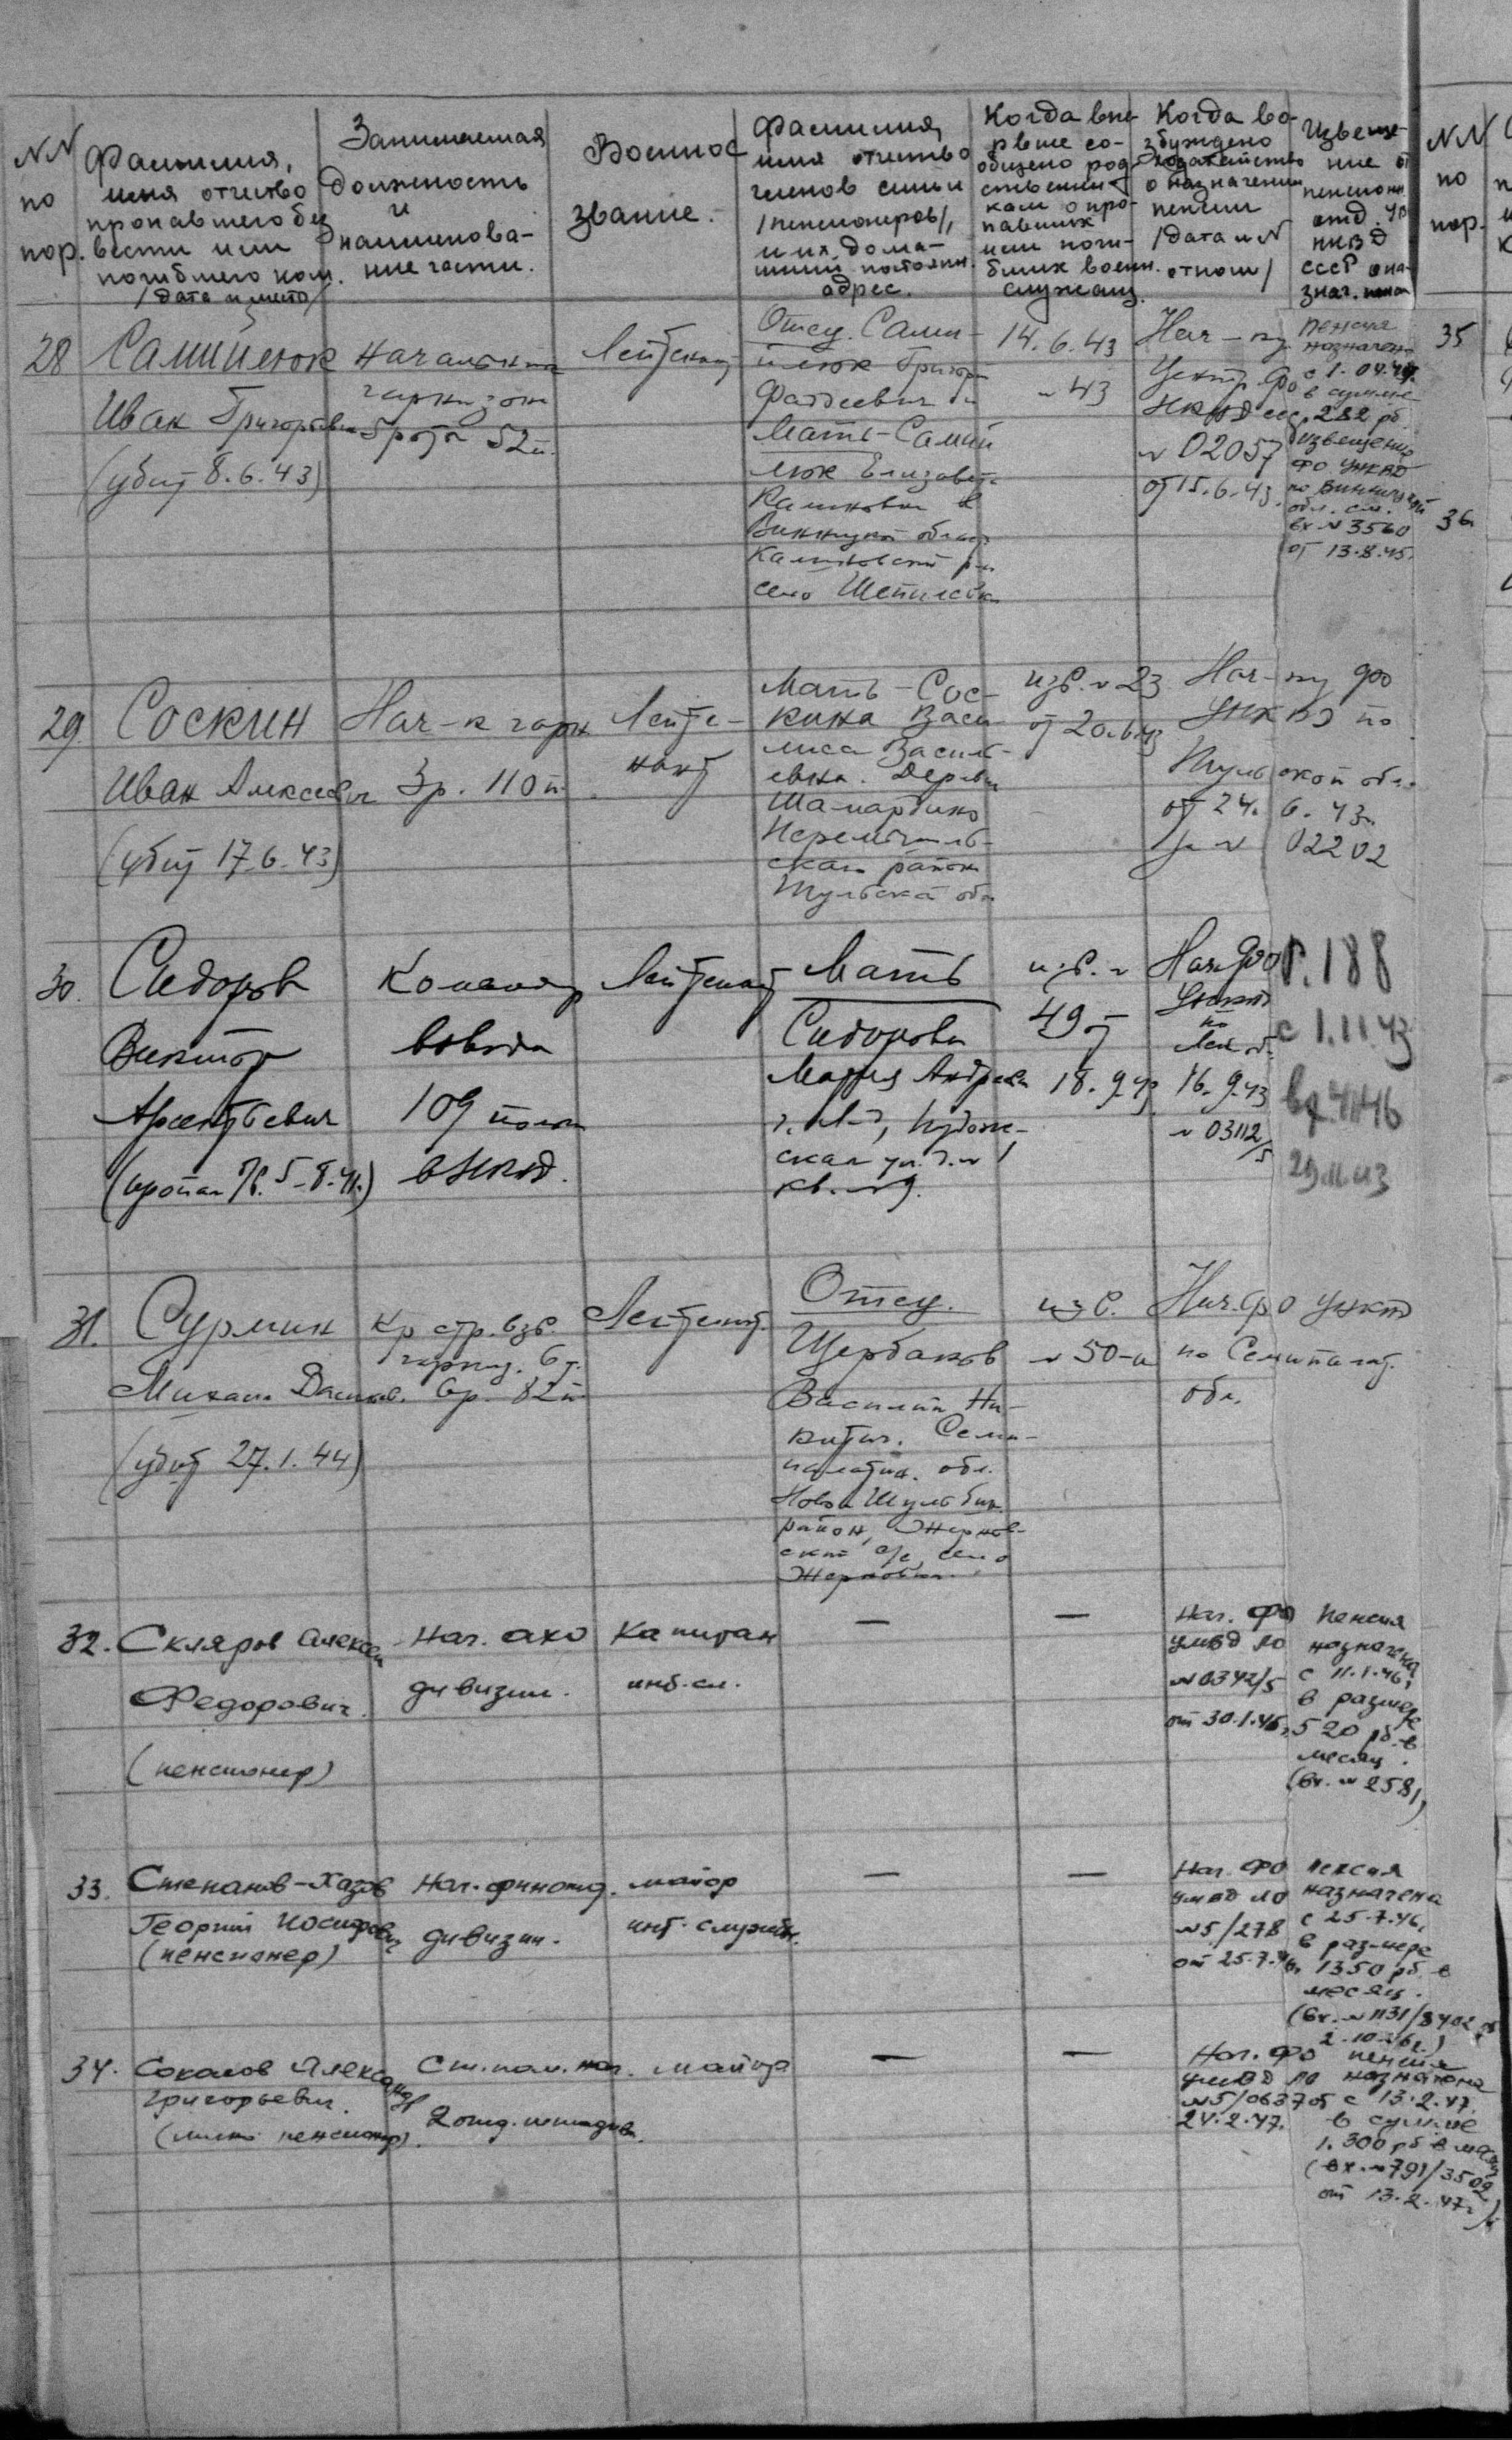 NN
по
пор.
Фамилия,
имя отчество
пропавшего без
вести или
погибшего ком.
/дата и место/
Занимаемая
должность
и
наименова-
ние части.
Военное
звание.
Фамилия,
имя отчество
членов семьи
/пенсионеров/,
и их дома-
шний постоян.
адрес.
Когда впе-
рвые со-
общено род-
ственни-
кам о про-
павших
или поги-
бших военн.
служащ.
Когда во-
збуждено
ходатайство
о назначении
пенсии
/дата и N
отнош/
Извеще-
ние от
пенсионн.
отд. УВ
НКВД
СССР о на-
знач. пенс
NN
по
пор.
28
Самийлюк
Иван Григорьевич
(убит 8.6.43)
Начальник
гарнизона
5 рота 52 п.
Лейтенант
Отец Сами-
йлюк Григорий
Фаддеевич и
Мать-Самий
люк Елизавета
Винницкой область
Калиновский р-н
село Шепиловка
14.6.43
N 43
Нач-ку
Центр. ФО
НКВД ссср
N 02057
от 15.6.43.
Пенсия
назначена
с 1.04.44.
в сумме
282 рб.
извещение
ФО УНКВД
по Винницкой
обл. см.
вх N 3560
от 13.8.45.
35
36
29.
Соскин
Иван Алексеевич
(убит 17.6.43)
Нач-к гарн.
3р. 110 п.
Лейте-
нант
Мать-Сос-
кина Васи-
лиса Василь-
евна. Деревня
Шамардино
Перемышль-
ского района
Тульская обл
изв. N 23
от 20.6.43
Нач-ку ФО
УНКВД по
Тульской обл.
от 24. 6. 43г.
за N 02202
30.
Сидоров
Виктор
Арсентьевич
(пропал б/в. 5-8-41.)
Командир
взвода
109 полка
в НКВД.
Лейтенант
Мать
Сидорова
Мария Андреевна
г. Л-д,
ская ул. д. N 1
кв. N 9.
изв. N
49 от
18.9.43
Нач. ФО
УНКВД
по
Лен об.
16.9.43
N 03112/5
Р. 188
с 1.11.43
вх. 4146
29.11.43
31.
Сурмин
Михаил Данилов.
(убит 27.1.44)
Кр стр. взв.
гарниз. 6 г.
6р. 82 п
Лейтенант.
Отец.
Щербаков
Василий Ни-
китич. Семи-
палатин. обл.
Ново Шульбин.
район, Жернов-
ский с/с, село
Жерновка.
изв.
N 50-а
Нач. ФО УНКВД
по Семипалат.
обл.
32.
Скляров Алексей
Федорович.
(пенсионер)
Нач. АХО
дивизии.
Капитан
инт. сл.
—
—
Нач. ФО
УМВД ЛО
N 0342/5
от 30.1.46г.
Пенсия
назначена
с 11.1.46г
в размере
520 рб. в
месяц.
(вх. N 2581)
33.
Степанов-Хазов
Георгий Иосифович
(пенсионер)
Нач. финотд.
дивизии.
майор
инт. службы.
—
—
Нач. ФО
УМВД ЛО
N 5/278
от 25.7.46г.
пенсия
назначена
с 25.7.46г
в размере
1350 рб. в
месяц.
(вх. N 1131/8402 от
2.10.46г.)
34.
Соколов Александр
Григорьевич.
(лично пенсионер).
Ст. пом. нач.
2 отд. штадива.
майора
—
—
Нач. ФО
УМВД ЛО
N 5/0637 от
24.2.47.
пенсия
назначена
с 13.2.47.
в сумме
1.300 рб в месяц
(вх. N 791/3502
от 13.2.47г.)